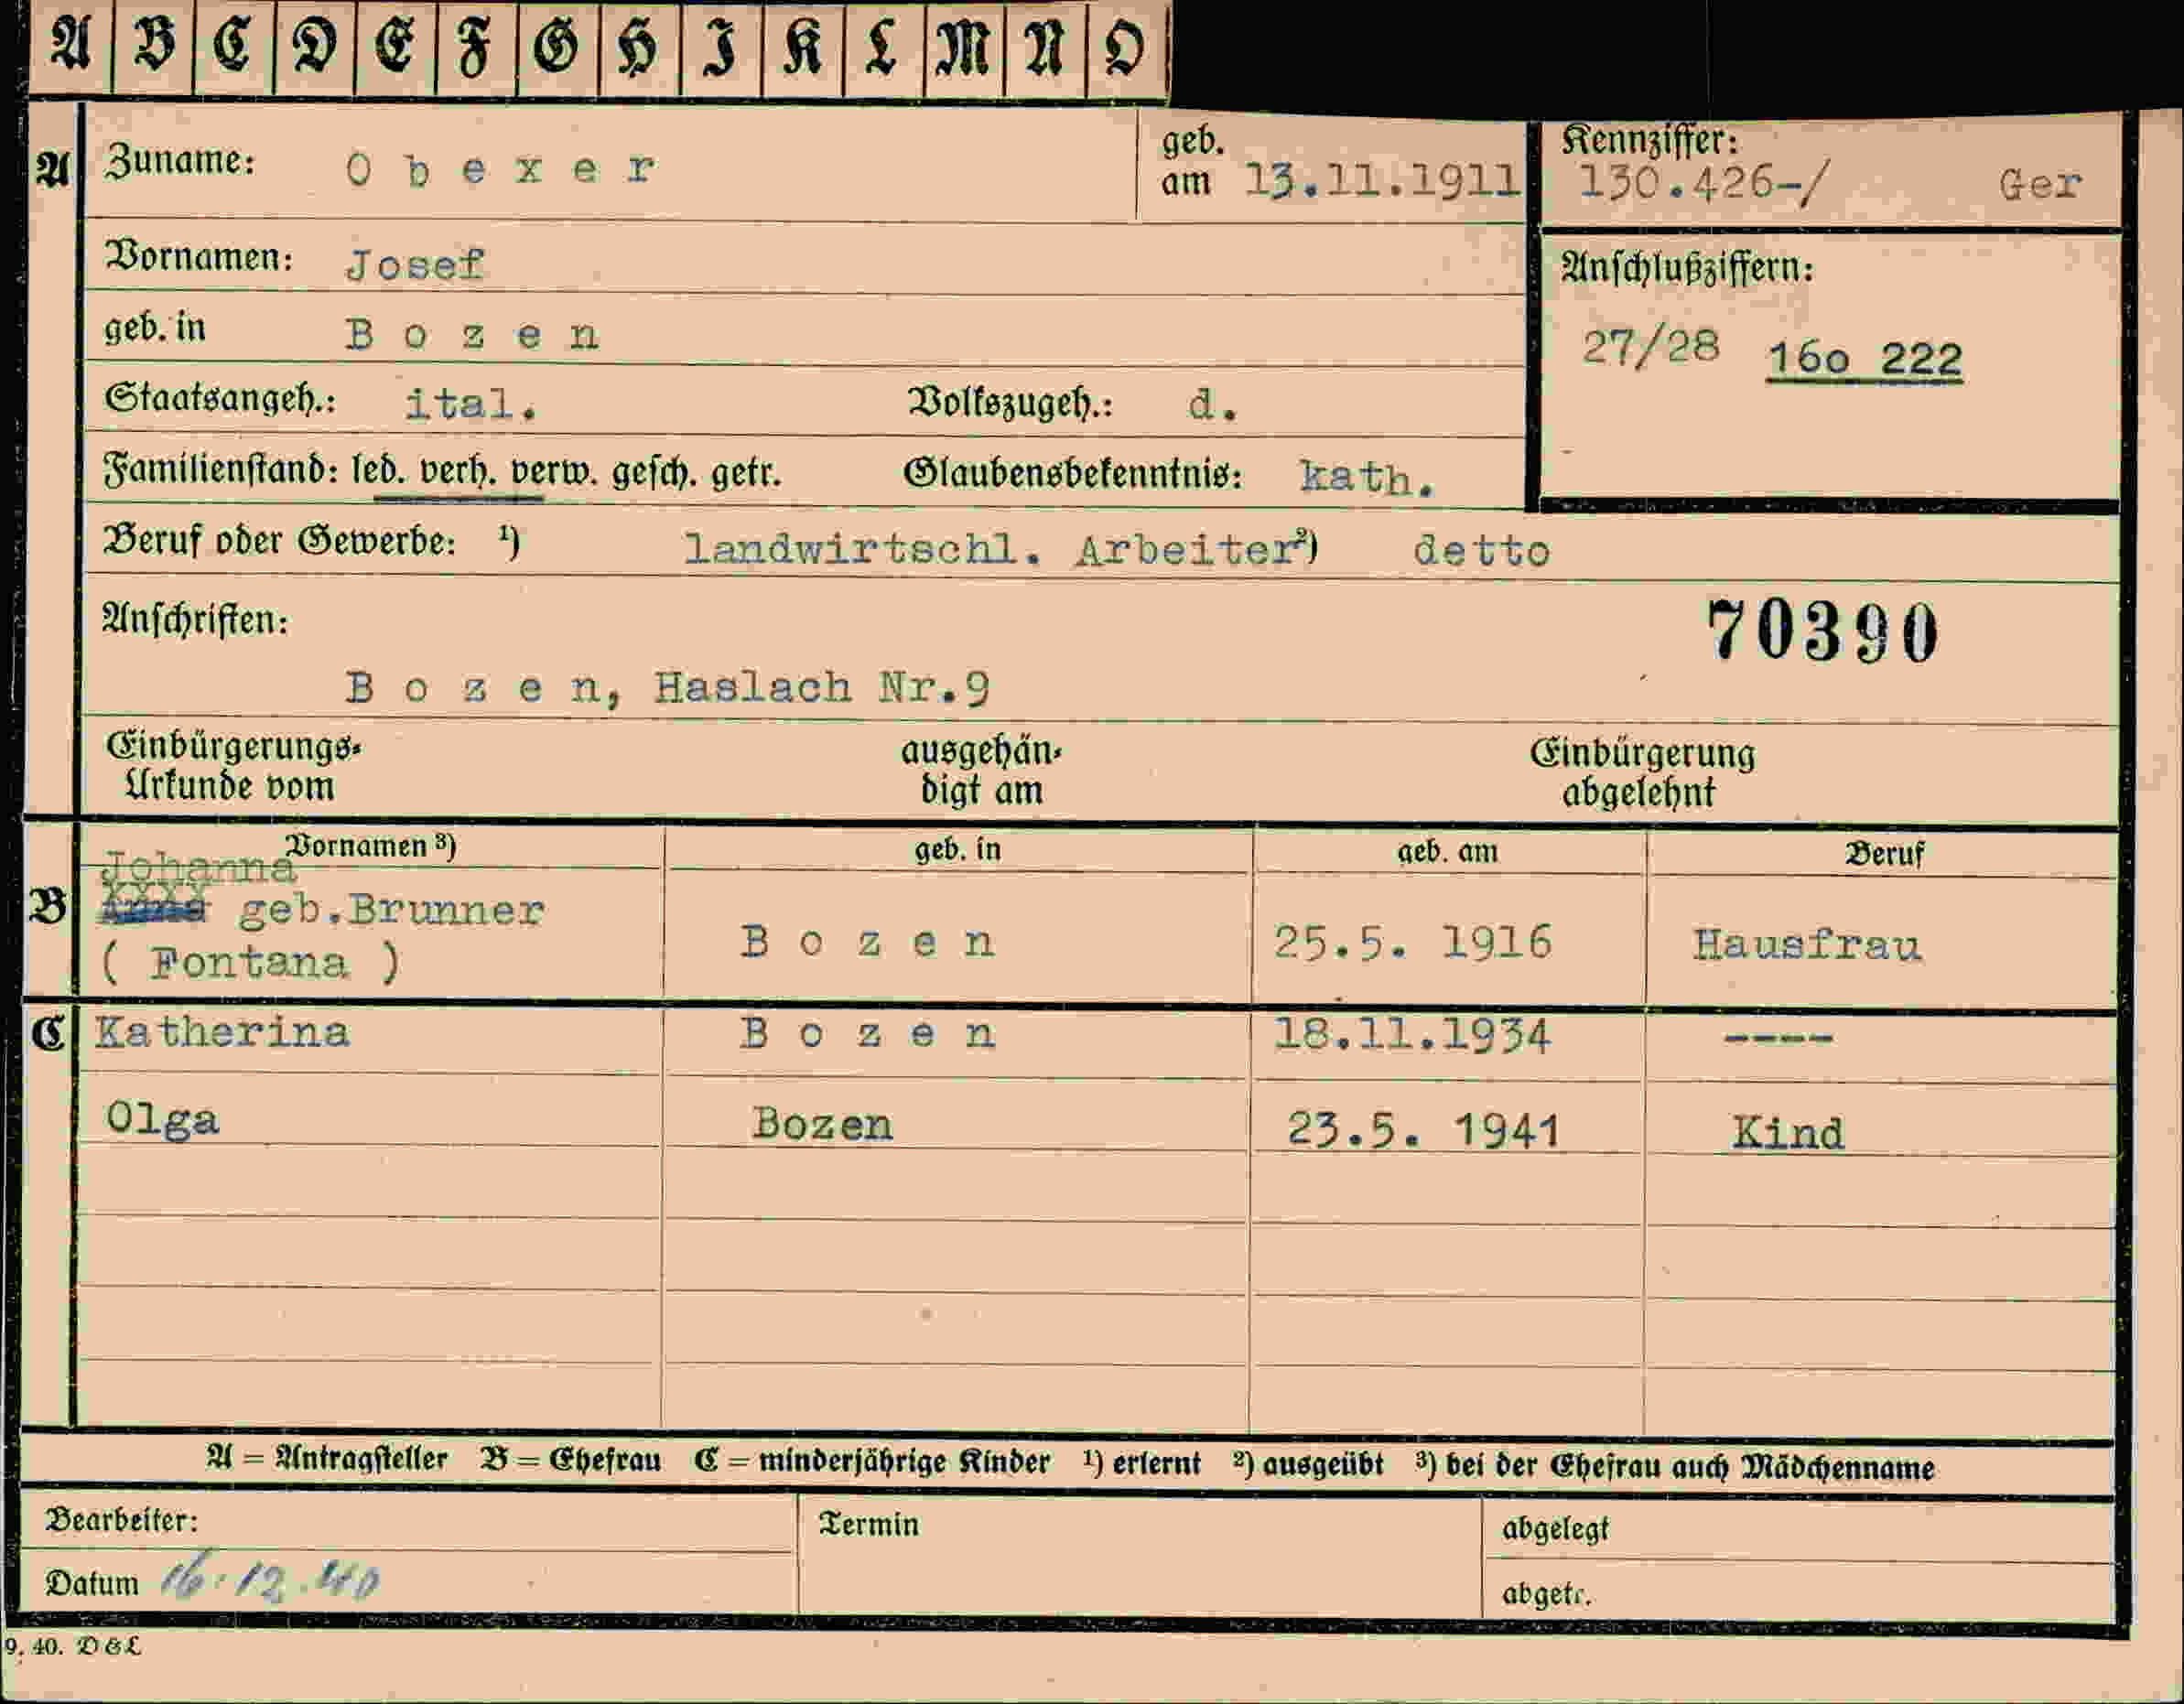 A B C D E F G H I K L M N O
A Zuname: O b e x e r geb. am 13.11.1911 Kennziffer: 130.426-/ Ger
Vornamen: Josef
Anschlußziffern:
geb. in B o z e n
27/28 16o 222
Staatsangeh.: ital. Volkszugeh.: d.
Familienstand: led. verh. verw. gesch. getr. Glaubensbekenntnis: kath.
Beruf oder Gewerbe: ¹) landwirtschl. Arbeiter ²) detto
Anschriften:
70390
B o z e n, Haslach Nr.9
Einbürgerungs- ausgehän- Einbürgerung
Urkunde vom digt am abgelehnt
Vornamen ³) geb. in geb. am Beruf
Johanna
B geb.Brunner
( Fontana ) B o z e n 25.5. 1916 Hausfrau
C Katherina B o z e n 18.11.1934 ----
Olga Bozen 23.5. 1941 Kind
A = Antragsteller B = Ehefrau C = minderjährige Kinder ¹) erlernt ²) ausgeübt ³) bei der Ehefrau auch Mädchenname
Bearbeiter: Termin abgelegt
Datum 16.12.40 abgetr.
9. 40. D & L